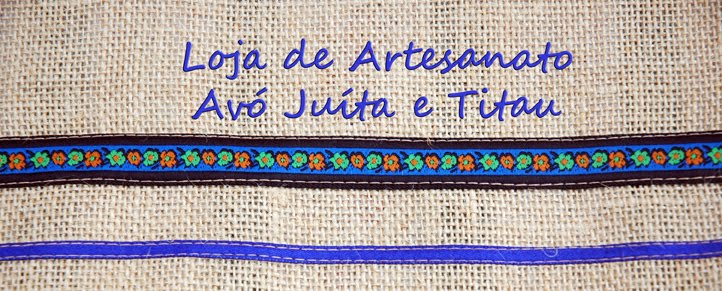 Loja de Artesanato
Avó Juíta e Titau